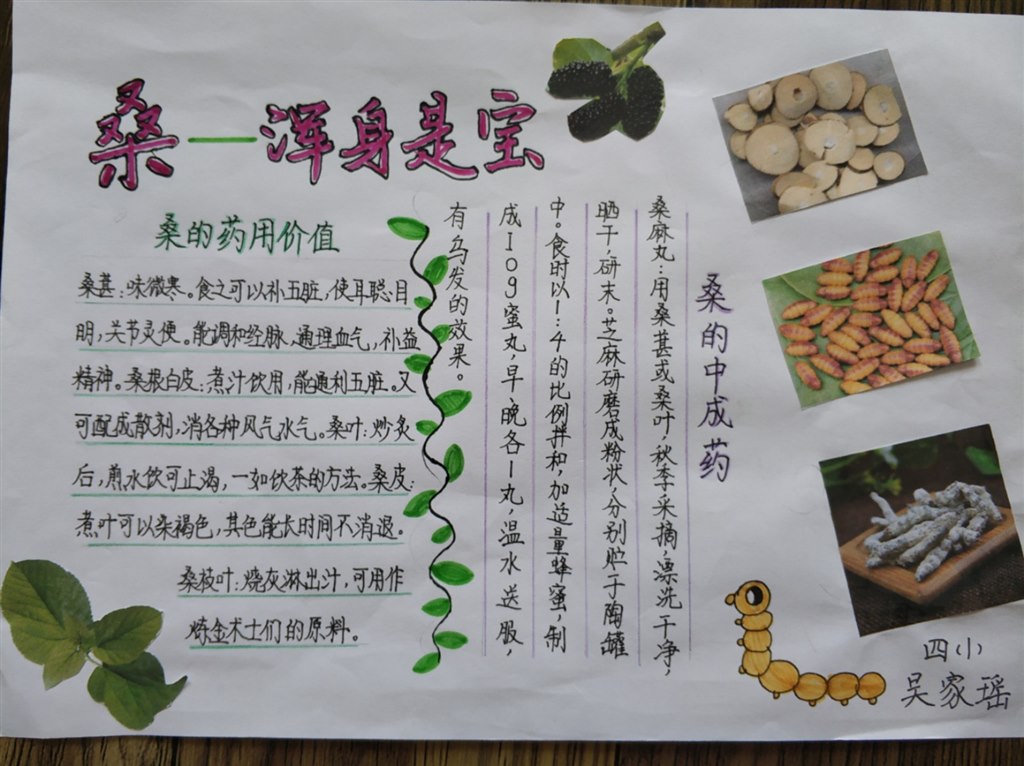 桑—浑身是宝
桑的药用价值
桑葚:味微寒。食之可以补五脏,使耳聪目
明,关节灵便。能调和经脉,通理血气,补益
精神。桑根白皮:煮汁饮用,能通利五脏。又
可配成散剂,消各种风气水气。桑叶:炒炙
后,煎水饮可止渴,一如饮茶的方法。桑皮:
煮叶可以染褐色,其色能长时间不消退。
桑枝叶:烧灰淋出汁,可用作
炼金术士们的原料。
桑的中成药
桑麻丸:用桑葚或桑叶,秋季采摘,漂洗干净,
晒干,研末。芝麻研磨成粉状,分别贮于陶罐
中。食时以1:4的比例拌和,加适量蜂蜜,制
成10g蜜丸,早、晚各1丸,温水送服,
有乌发的效果。
四小
吴家瑶